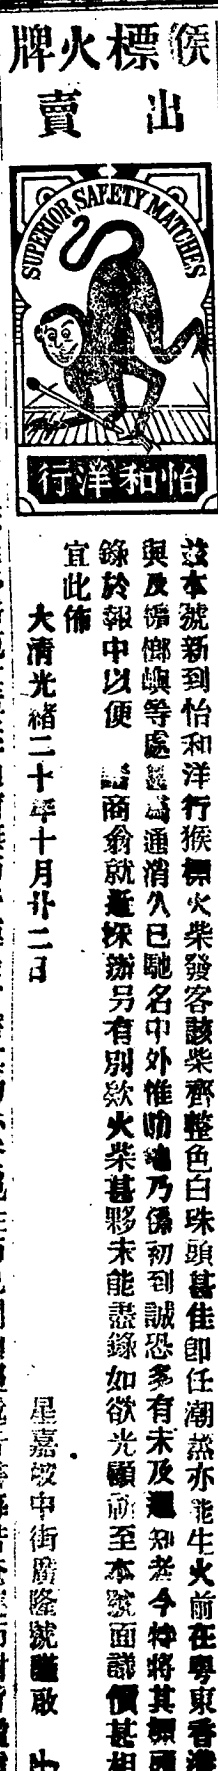 牌火標猴
賣出
SUPERIOR SAFETY MATCHES
行洋和怡
茲本號新到怡和洋行猴標火柴發客該柴齊整色白珠頭甚佳即任潮蒸亦能生火前在粵東香港
與及檳榔嶼等處 通消久已馳名中外惟叻 乃係初到誠恐多有未及 知者今特將其標頭
錄於報中以便 商翁就近採辦另有別欵火柴甚夥未能盡錄如欲光顧祈至本號面議價甚相
宜此佈
大清光緒二十年十月廿二日
星嘉坡中街廣隆號謹啟